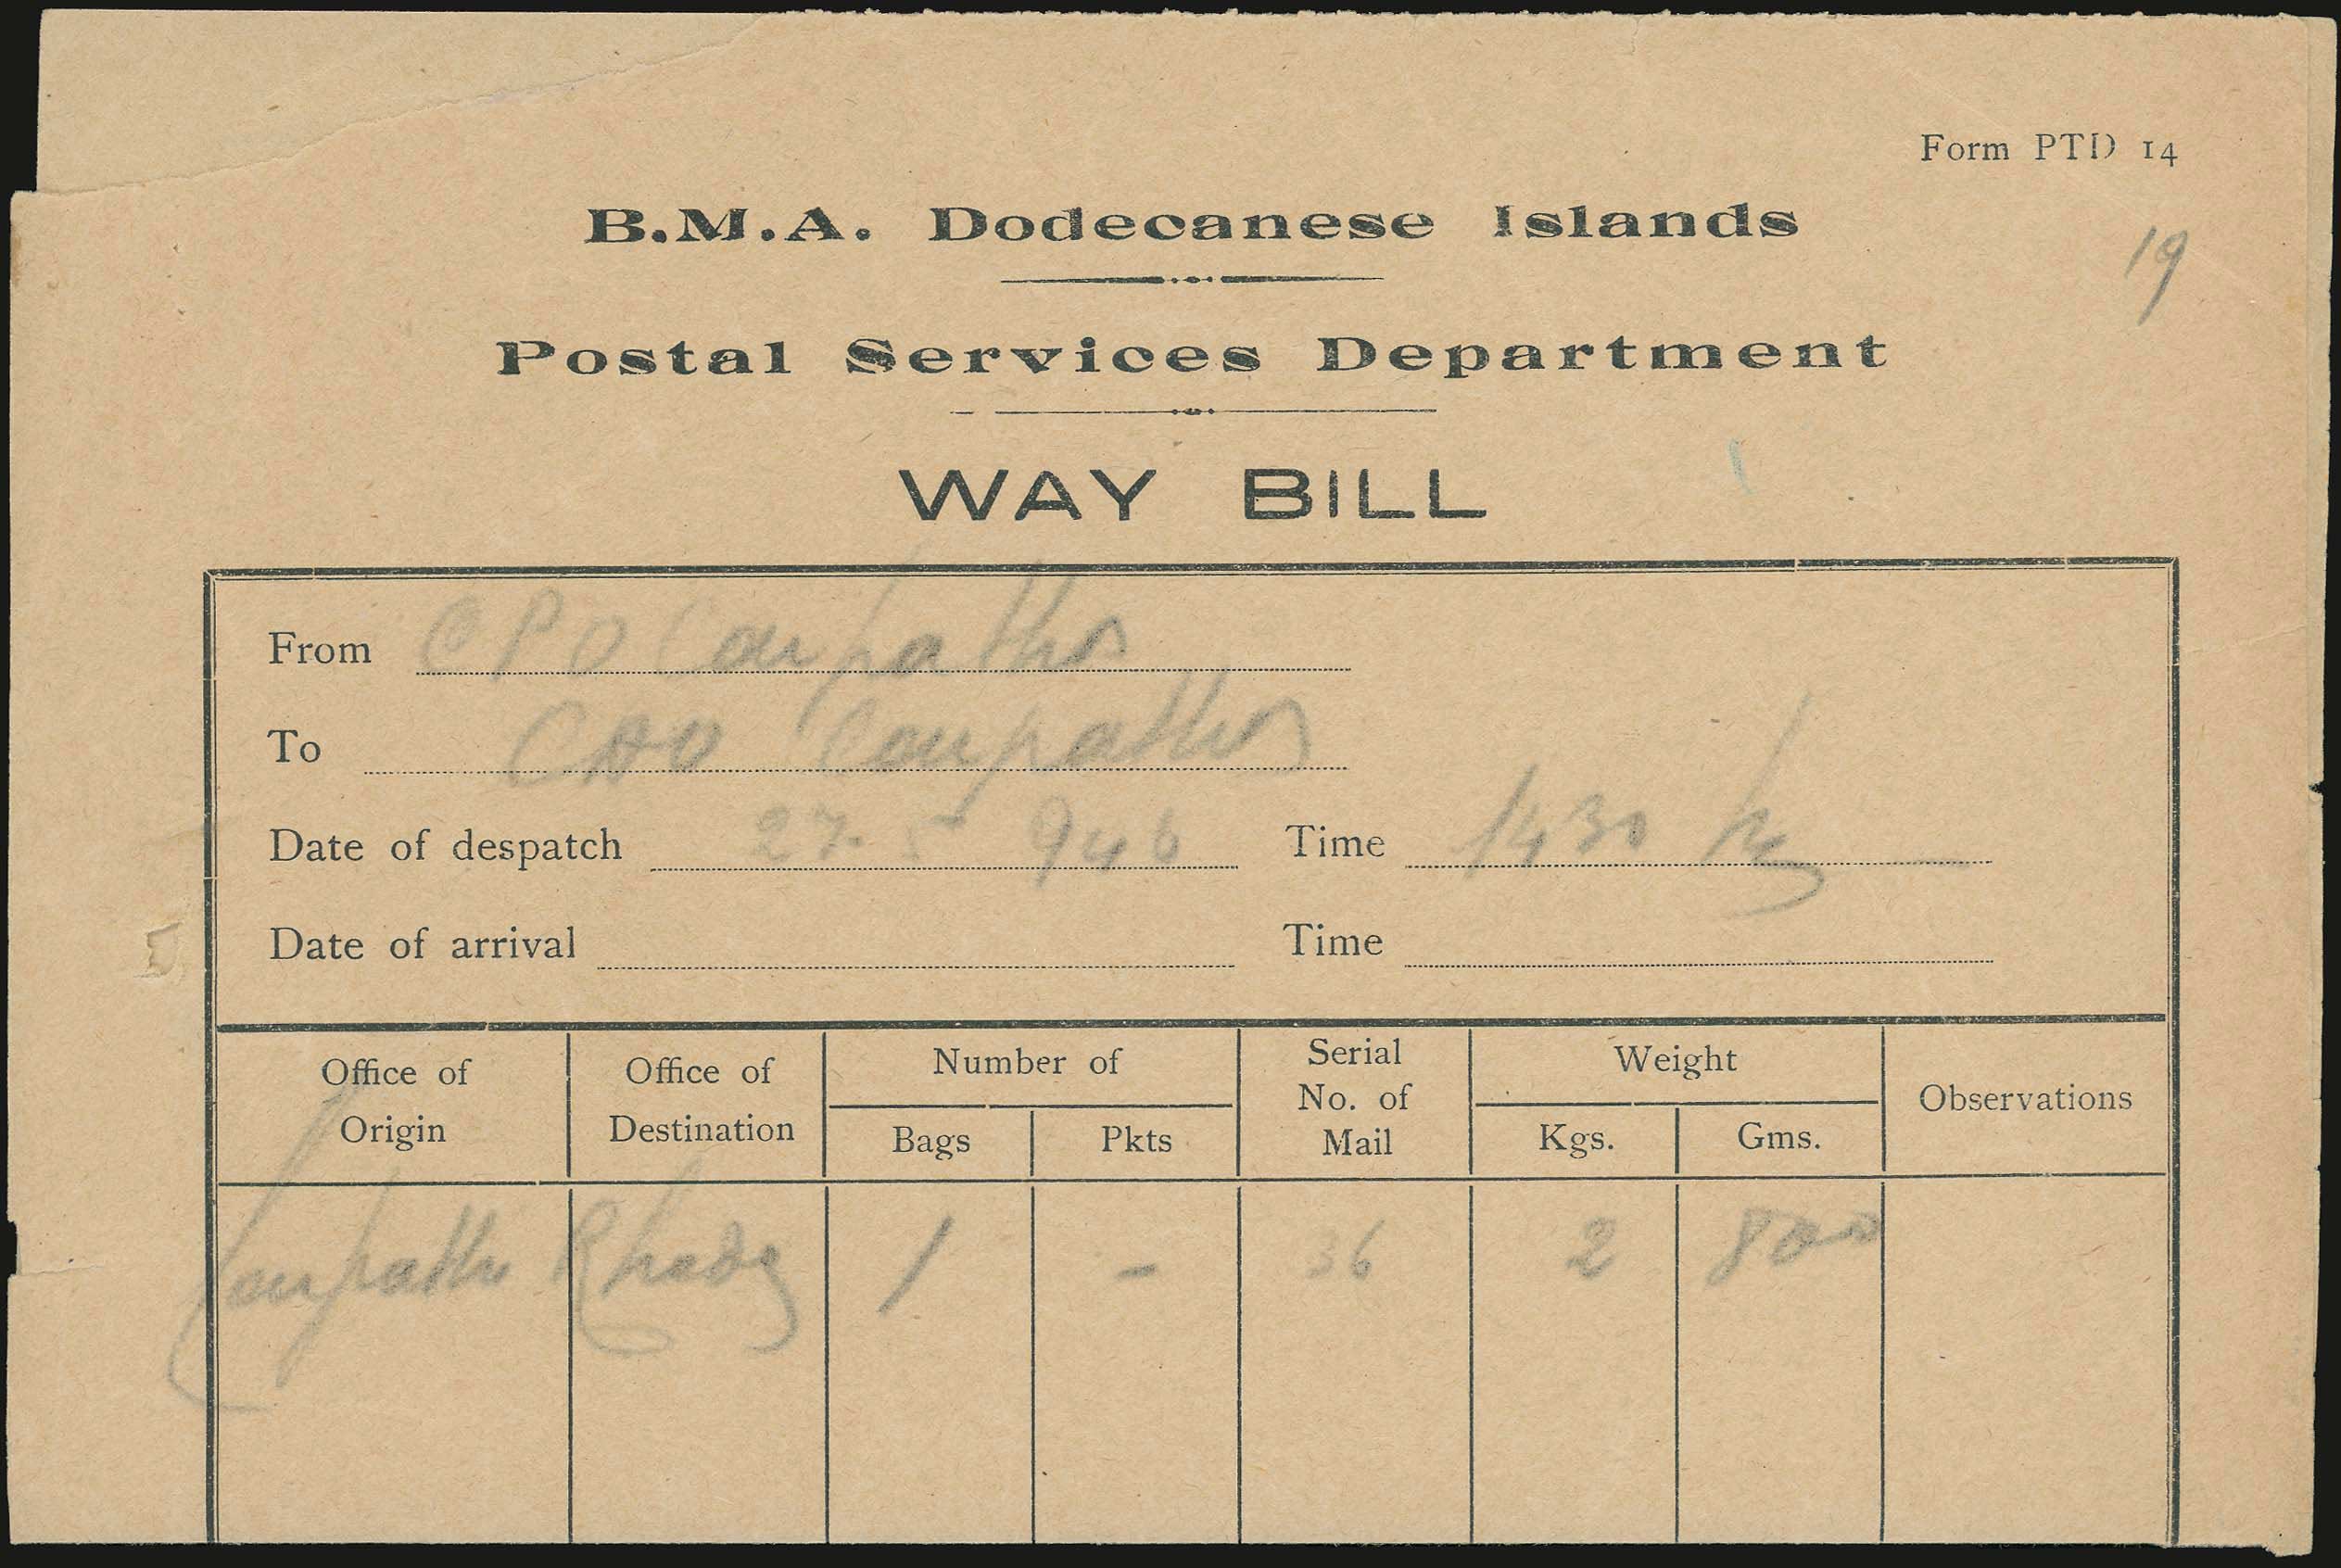 Form PTD 14
B.M.A. Dodecanese Islands
19
Postal Services Department
WAY BILL
From CPO Carpathos
To CAO Carpathos
Date of despatch 27. 5 946 Time 1430
Date of arrival Time
Office of Origin Office of Destination Number of Bags Pkts Serial No. of Mail Weight Kgs. Gms. Observations
Carpathos Rhodes 1 - 36 2 800